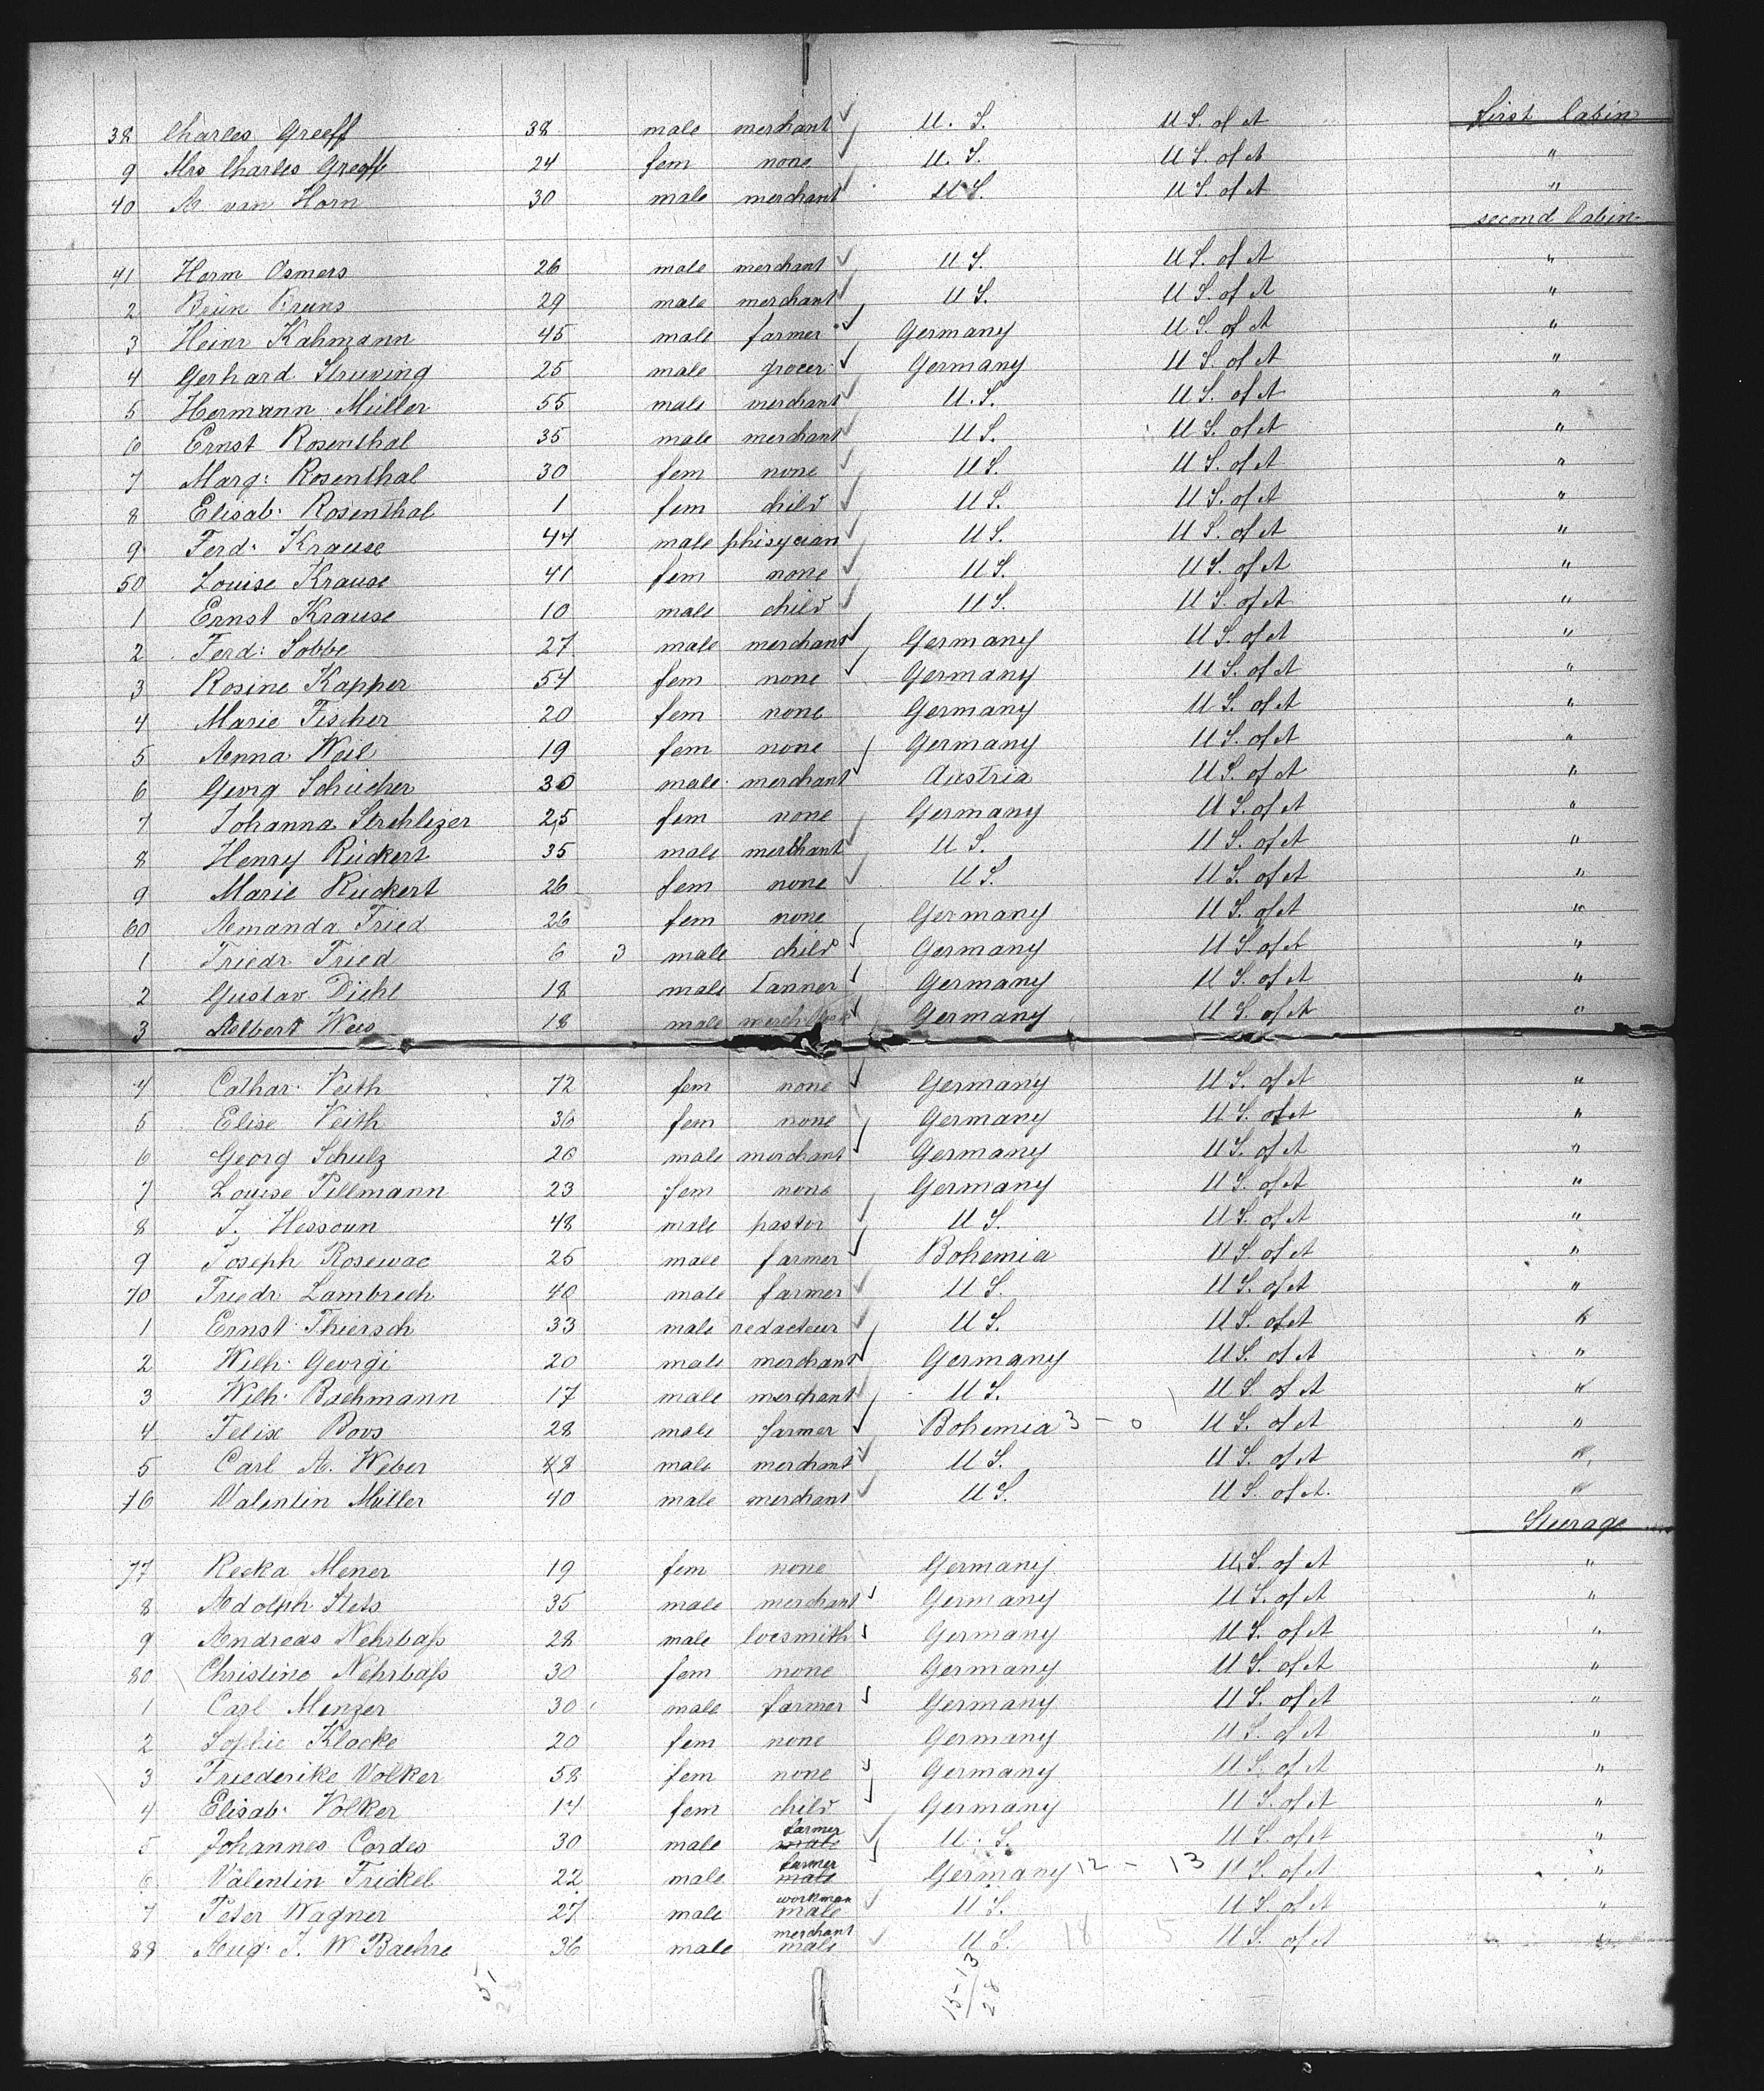 38 Charles Greeff 38 male merchant U. S. U S. of A first Cabin
9 Mrs Charles Greeff 24 fem none U. S. U S. of A "
40 A van Horn 30 male merchant U S. U S. of A "
second Cabin
41 Herm Osmers 26 male merchant U S. U S. of A "
2 Brün Bruns 29 male merchant U S. U S. of A "
3 Heinr Kahmann 45 male farmer Germany U S. of A "
4 Gerhard Struving 25 male grocer Germany U S. of A "
5 Hermann Müller 55 male merchant U. S. U S. of A "
6 Ernst Rosenthal 35 male merchant U S. U S. of A "
7 Marg: Rosenthal 30 fem none U S. U S. of A "
8 Elisab: Rosenthal 1 fem child U S. U S. of A "
9 Ferd: Krause 44 male phisycian U S. U S. of A "
50 Louise Krause 41 fem none U S. U S. of A "
1 Ernst Krause 10 male child U S. U S. of A "
2 Ferd: Sobbe 27 male merchant Germany U S. of A "
3 Rosine Kapper 54 fem none Germany U S. of A "
4 Marie Fischer 20 fem none Germany U S. of A "
5 Anna Weil 19 fem none Germany U S. of A "
6 Georg Schücher 30 male merchant Austria U S. of A "
7 Johanna Strehlizer 25 fem none Germany U S. of A "
8 Henry Rückert 35 male merchant U S. U S. of A "
9 Marie Rückert 26 fem none U S. U S. of A "
60 Amanda Fried 26 fem none Germany U S. of A "
1 Friedr Fried 6 3 male child Germany U S. of A "
2 Gustav Diehl 18 male tanner Germany U S. of A "
3 Albert Weis 18 male Germany U S. of A "
4 Cathar: Veith 72 fem none Germany U S. of A "
5 Elise Veith 36 fem none Germany U S. of A "
6 Georg Schulz 26 male merchant Germany U S. of A "
7 Louise Pillmann 23 fem none Germany U S. of A "
8 J. Hessoun 48 male pastor U S. U S. of A "
9 Joseph Rosewac 25 male farmer Bohemia U S. of A "
70 Friedr Lambrech 40 male farmer U S. U S. of A "
1 Ernst Thiersch 33 male redacteur U S. U S. of A "
2 Wilh: Georgi 20 male merchant Germany U S. of A "
3 Wilh: Bachmann 17 male merchant U S. U S. of A "
4 Felix Boos 28 male farmer Bohemia 3 - 0 U S. of A "
5 Carl A. Weber 48 male merchant U S. U S. of A "
76 Valentin Müller 40 male merchant U S. U S. of A. "
Steerage
77 Recka Mener 19 fem none Germany U S. of A "
8 Adolph Stets 35 male merchant Germany U S. of A "
9 Andreas Nehrbaß 28 male locsmith Germany U S. of A "
80 Christine Nehrbaß 30 fem none Germany U S. of A "
1 Carl Menzer 30 male farmer Germany U S. of A "
2 Sophie Klocke 20 fem none Germany U S. of A "
3 Friederike Volker 58 fem none Germany U S. of A "
4 Elisab: Volker 14 fem child Germany U S. of A "
5 Johannes Cordes 30 male male farmer U. S. U S. of A "
6 Valentin Frickel 22 male male farmer Germany 12 - 13 U S. of A "
7 Peter Wagner 27 male male workman U S. U S. of A "
88 Aug: J. W Baehre 36 male male merchant U S. 18 5 U S. of A "
51
15-13
28